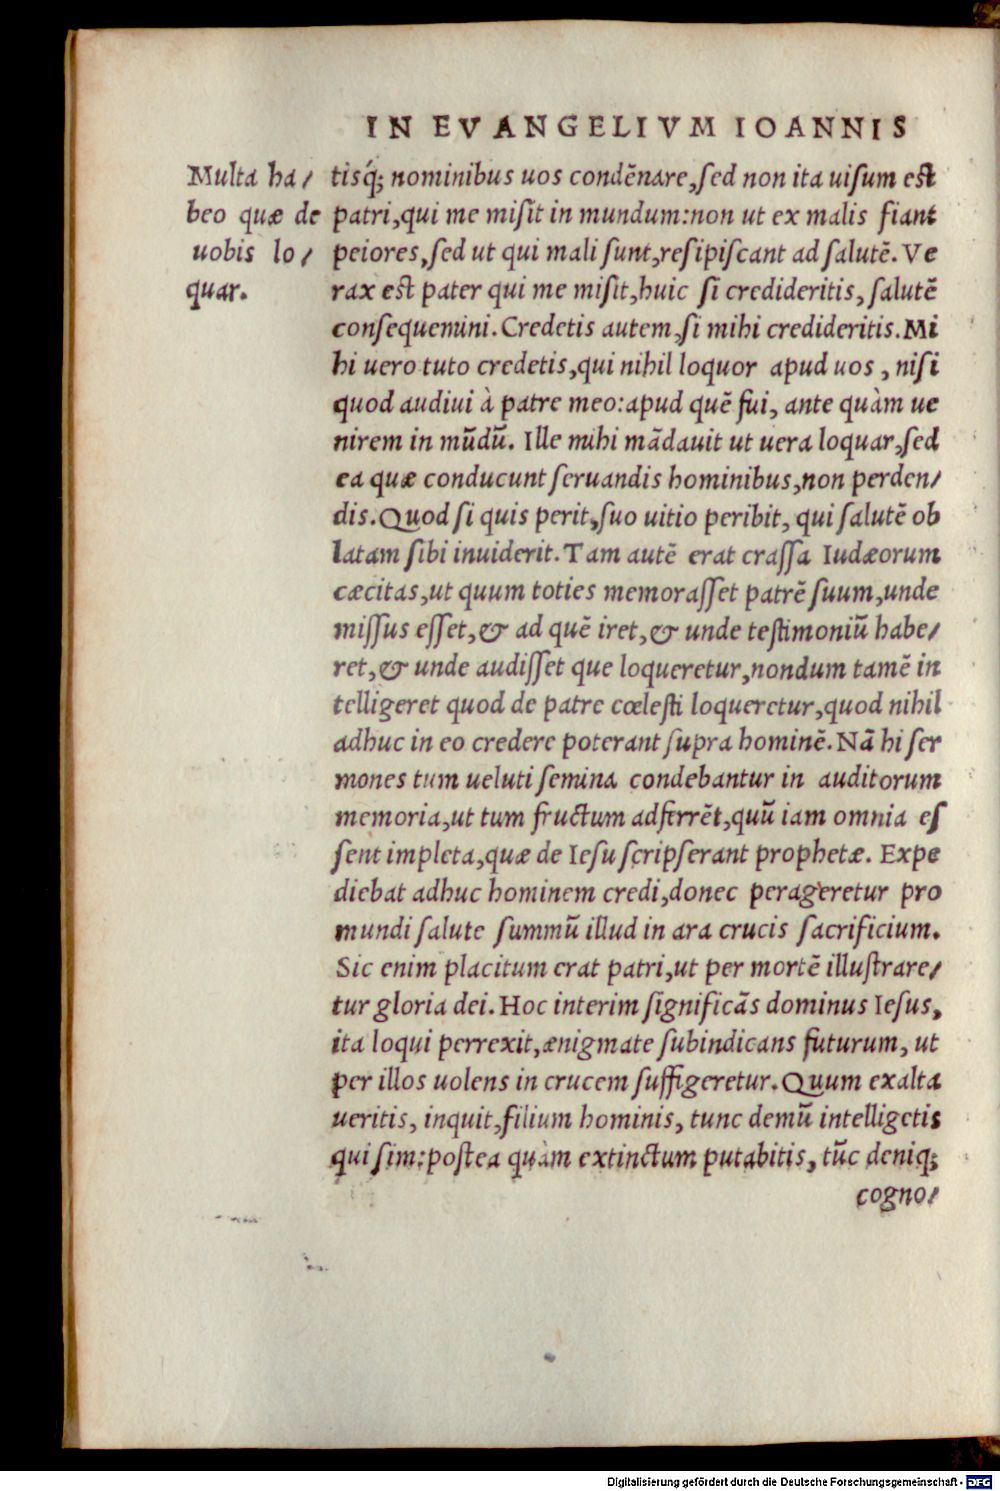 IN EVANGELIVM IOANNIS
Multa ha/
beo quæ de
uobis lo/
quar.
tisq́; nominibus uos condēnare,ſed non ita uiſum eſt
patri,qui me miſit in mundum:non ut ex malis fiant
peiores,ſed ut qui mali ſunt,reſipiſcant ad ſalutē. Ve
rax eſt pater qui me miſit,huic ſi credideritis, ſalutē
conſequemini. Credetis autem,ſi mihi credideritis. Mi
hi uero tuto credetis,qui nihil loquor apud uos , niſi
quod audiui à patre meo:apud quē fui, ante quàm ue
nirem in mūdū. Ille mihi mādauit ut uera loquar,ſed
ea quæ conducunt ſeruandis hominibus,non perden/
dis. Quod ſi quis perit,ſuo uitio peribit, qui ſalutē ob
latam ſibi inuiderit. Tam autē erat craſſa Iudæorum
cæcitas,ut quum toties memoraſſet patrē ſuum,unde
miſſus eſſet,& ad quē iret,& unde teſtimoniū habe/
ret,& unde audiſſet que loqueretur,nondum tamē in
telligeret quod de patre cœleſti loqueretur,quod nihil
adhuc in eo credere poterant ſupra hominē. Nā hi ſer
mones tum ueluti ſemina condebantur in auditorum
memoria,ut tum fructum adferrēt,quū iam omnia eſ
ſent impleta,quæ de Ieſu ſcripſerant prophetæ. Expe
diebat adhuc hominem credi,donec perageretur pro
mundi ſalute ſummū illud in ara crucis ſacrificium.
Sic enim placitum erat patri,ut per mortē illuſtrare/
tur gloria dei. Hoc interim ſignificās dominus Ieſus,
ita loqui perrexit,ænigmate ſubindicans futurum, ut
per illos uolens in crucem ſuffigeretur. Quum exalta
ueritis, inquit,filium hominis, tunc demū intelligetis
qui ſim:poſtea quàm extinctum putabitis, tūc deniq;
cogno/
Digitalisierung gefördert durch die Deutsche Forschungsgemeinschaft - DFG